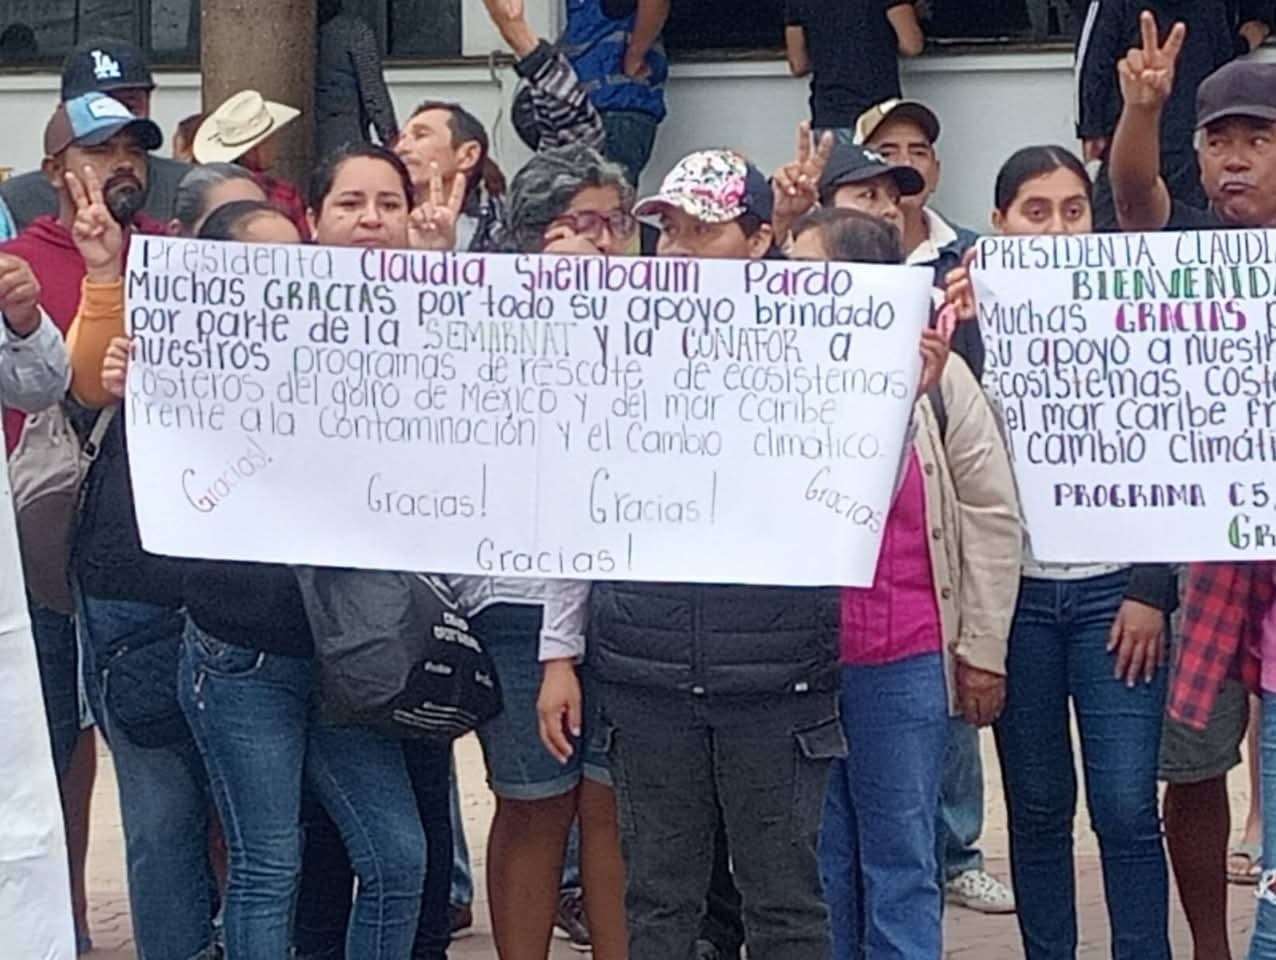 Presidenta Claudia Sheinbaum Pardo
Muchas GRACIAS por todo su apoyo brindado
por parte de la SEMARNAT y la CONAFOR a
nuestros programas de rescate de ecosistemas
costeros del golfo de México y del mar caribe
frente a la contaminación y el cambio climático.
Gracias! Gracias! Gracias! Gracias
Gracias!
PRESIDENTA CLAUDI
BIENVENIDA
Muchas GRACIAS P
su apoyo a nuestr
ecosistemas coste
del mar caribe fr
l cambio climáti
PROGRAMA C5,
GR
LA